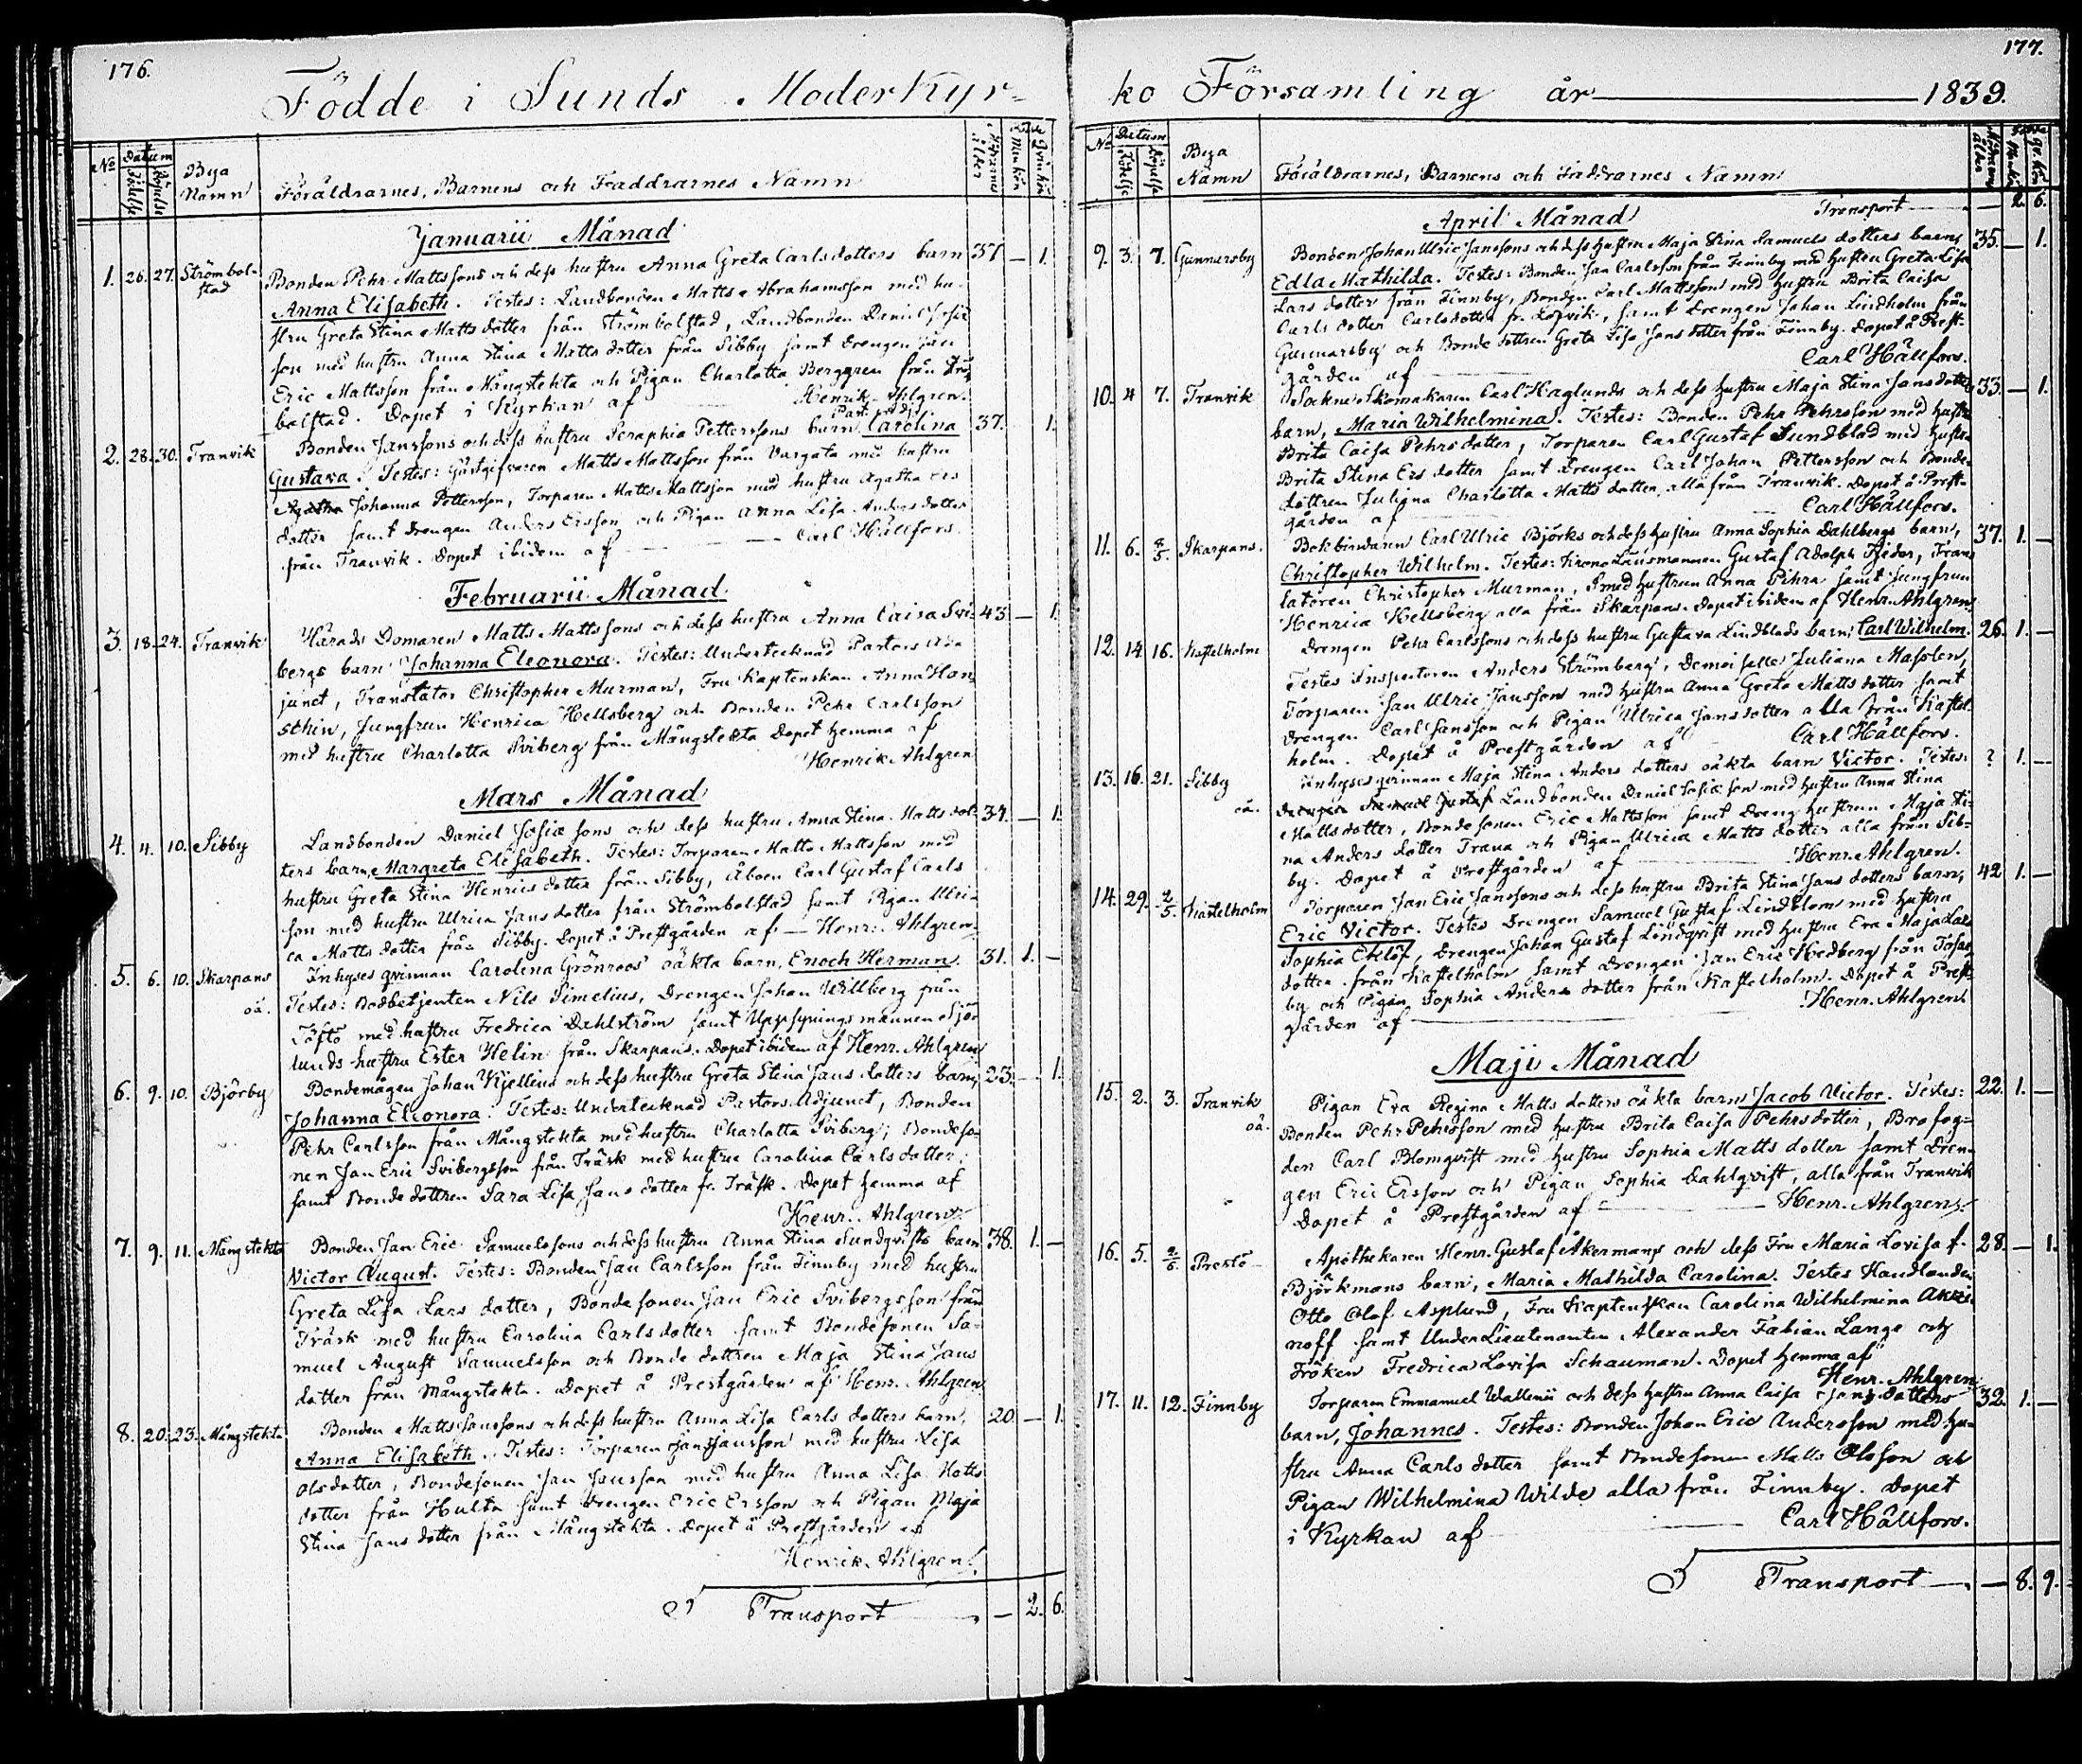 176.
Födde i Sunds Moderkyr=
No Datum Bya Namn Föräldrarnes, Barnens och Faddrarnes Namn
Födelse Döpelse Mödrarnes ålder Mankön Qvinkön
Januarii Månad
1. 26. 27. Strömbol-stad Bonden Pehr Mattssons och dess hustru Anna Greta Carlsdotters barn 37 — 1.
Anna Elisabeth. Testes: Landbonden Matts Abrahamsson med hu-
stru Greta Stina Mattsdotter från Strömbolstad, Landbonden Daniel Josia
son med hustru Anna Stina Mattsdotter från Sibby samt Drengen Jan
Eric Mattsson från Mångstekta och Pigan Charlotta Berggren från Ström
bolstad. Döpet i Kyrkan af Henrik Ahlgren.
2. 28. 30. Tranvik Bonden Janssons och dess hustru Seraphia Petterssons barn Carolina 37. 1.
Gustava. Testes: Gästgifvaren Matts Mattsson från Vargata med hustru
Agatha Johanna Pettersson, Torparen Matts Mattsson med hustru Agatha Ers
dotter samt Drengen Anders Ersson och Pigan Anna Lisa Andersdotter
från Tranvik. Döpet ibidem af — Carl Hållfors.
Februarii Månad
3. 18. 24. Tranvik Härads Domaren Matts Mattssons och dess hustru Anna Caisa Svi- 43. — 1.
bergs barn Johanna Eleonora. Testes: Undertecknad Pastors Ad
junct, Translator Christopher Murman, Fru Kaptenskan Anna Hon
schin, Jungfrun Henrica Hellsberg och Bonden Pehr Carlsson
med hustru Charlotta Sviberg från Mångstekta Döpet hemma af
Henrik Ahlgren
Mars Månad
4. 4. 10. Sibby Landbonden Daniel Josiæ sons och dess hustru Anna Stina Matts dot- 34. — 1.
ters barn, Margreta Elisabeth. Testes: Torparen Matts Mattsson med
hustru Greta Stina Henricsdotter från Sibby, Åboen Carl Gustaf Carls
son med hustru Ulrica Jansdotter från Strömbolstad samt Pigan Ulri
ca Mattsdotter från Sibby. Döpet å Prestgården af — Henr. Ahlgren
5. 6. 10. Skarpans oä. Inhyses qvinnan Carolina Grönroos' oäkta barn, Enoch Herman. 31. 1. —
Testes: Bodbetjenten Nils Simelius, Drengen Johan Willberg från
Töftö med hustru Fredrica Dahlström samt Uppsynings mannen Sjö
lunds hustru Ester Helin från Skarpans. Döpet ibidem af Henr. Ahlgren
6. 9. 10. Björby Bondemågen Johan Kjellins och dess hustru Greta Stina Jans dotters barn, 23. — 1.
Johanna Eleonora. Testes: Undertecknad Pastors Adjunct, Bonden
Pehr Carlsson från Mångstekta med hustru Charlotta Sviberg, Bondeso-
nen Jan Eric Svibergsson från Träsk med hustru Carolina Carlsdotter
samt Bondedottren Sara Lisa Jansdotter fr. Träsk. Döpet hemma af
Henr. Ahlgren
7. 9. 11. Mångstekta Bonden Jan Eric Samuelssons och dess hustru Anna Stina Sundqvists barn 38. 1. —
Victor August. Testes: Bonden Jan Carlsson från Finnby med hustru
Greta Lisa Larsdotter, Bondesonen Jan Eric Svibergsson från
Träsk med hustru Carolina Carlsdotter samt Bondesonen Sa-
muel August Samuelsson och Bondedottren Maja Stina Jans
dotter från Mångstekta. Döpet å Prestgården af Henr. Ahlgren
8. 20. 23. Mångstekta Bonden Matts Janssons och dess hustru Anna Lisa Carlsdotters barn, 20. — 1.
Anna Elisabeth. Testes: Torparen Jan Jansson med hustru Lisa
Olsdotter, Bondesonen Jan Jansson med hustru Anna Lisa Matts
dotter från Hulta samt Drengen Eric Ersson och Pigan Maja
Stina Jansdotter från Mångstekta. Döpet å Prestgården af
Henrik Ahlgren.
Transport — 2. 6.
177.
ko Församling år — 1839.
No Datum Bya Namn Föräldrarnes, Barnens och Faddrarnes Namn
Födelse Döpelse
April Månad Transport — 2. 6.
9. 3. 7. Gunnarsby Bonden Johan Ulric Janssons och dess hustru Maja Stina Samuels dotters barn, 35. — 1.
Edla Mathilda. Testes: Bonden Jan Carlsson från Finnby med hustru Greta Lisa
Lars dotter från Finnby, Bonden Carl Mattsson med hustru Brita Caisa
Carls dotter Carlsdotter fr. Löfvik, samt Drengen Johan Lindholm från
Gunnarsby och Bondedottren Greta Lisa Jansdotter från Finnby. Döpet å Prest-
gården af — Carl Hållfors.
10. 4. 7. Tranvik Sockne Skomakaren Carl Haglunds och dess hustru Maja Stina Jansdotters 33. — 1.
barn, Maria Wilhelmina. Testes: Bonden Pehr Pehrsson med hustru
Brita Caisa Pehrsdotter, Torparen Carl Gustaf Sundblad med hustru
Brita Stina Ersdotter samt Drengen Carl Johan Pettersson och Bonde-
dottren Juliana Charlotta Mattsdotter, alla från Tranvik. Döpet å Prest-
gården af — Carl Hållfors.
11. 6. 8/5. Skarpans. Bokbindaren Carl Ulric Björks och dess hustru Anna Sophia Dahlbergs barn, 37. 1. —
Christopher Wilhelm. Testes: Krono Länsmannen Gustaf Adolph, Trans
latoren Christopher Murman, Smedhustrun Anna Pihra samt Jungfrun
Henrica Hellsberg alla från Skarpans. Döpet ibidem af Henr. Ahlgren
12. 14. 16. Kastelholm Drengen Pehr Carlssons och dess hustru Gustava Lindblads barn, Carl Wilhelm. 26. 1. —
Testes Inspectoren Anders Strömberg, Demoiselle Juliana Masolen,
Torparen Jan Ulric Jansson med hustru Anna Greta Mattsdotter samt
Drengen Carl Jansson och Pigan Ulrica Jansdotter alla från Kastel-
holm. Döpet å Prestgården af Carl Hållfors.
13. 16. 21. Sibby oä. Inhyses qvinnan Maja Stina Anders dotters oäkta barn Victor. Testes: ? 1. —
Drengen Samuel Gustaf Landbonden Daniel Josiæ son med hustru Anna Stina
Mattsdotter, Bondesonen Eric Mattsson samt Dreng hustrun Maja Sti-
na Andersdotter Trana och Pigan Ulrica Mattsdotter alla från Sib-
by. Döpet å Prestgården af — Henr. Ahlgren.
14. 29. 2/5. Kastelholm Torparen Jan Eric Janssons och dess hustru Brita Stina Jans dotters barn, 42 1. —
Eric Victor. Testes Drengen Samuel Gustaf Lindblom med hustru
Sophia Eklöf, Drengen Johan Gustaf Lindqvist med hustru Eva Maja Carls
dotter från Kastelholm samt Drengen Jan Eric Hedberg från Tosar
by och Pigan Sophia Andersdotter från Kastelholm. Döpet å Prest-
gården af — Henr. Ahlgren
Maji Månad
15. 2. 3. Tranvik oä. Pigan Eva Regina Matts dotters oäkta barn Jacob Victor. Testes: 22. 1. —
Bonden Pehr Pehrsson med hustru Brita Caisa Pehrsdotter, Brofog=
den Carl Blomqvist med hustru Sophia Mattsdotter samt Dren-
gen Eric Ersson och Pigan Sophia Dahlqvist, alla från Tranvik
Döpet å Prestgården af — Henr. Ahlgren
16. 5. Prestö Apothekaren Henr. Gustaf Åkermans och dess Fru Maria Lovisa f. 28. — 1.
Björkmans barn, Maria Mathilda Carolina. Testes Handlanden
Otto Olof Asplund, Fru Kaptenskan Carolina Wilhelmina
noff samt UnderLieutenanten Alexander Fabian Lange och
Fröken Fredrica Lovisa Schauman. Döpet hemma af
Henr. Ahlgren
17. 11. 12. Finnby Torparen Emmanuel Wallenii och dess hustru Anna Caisa Jansdotters 32. 1. —
barn, Johannes. Testes: Bonden Johan Eric Andersson med hu-
stru Anna Carlsdotter samt Bondesonen Matts Olsson och
Pigan Wilhelmina Wilde alla från Finnby. Döpet
i Kyrkan af — Carl Hållfors.
Transport — 8. 9.